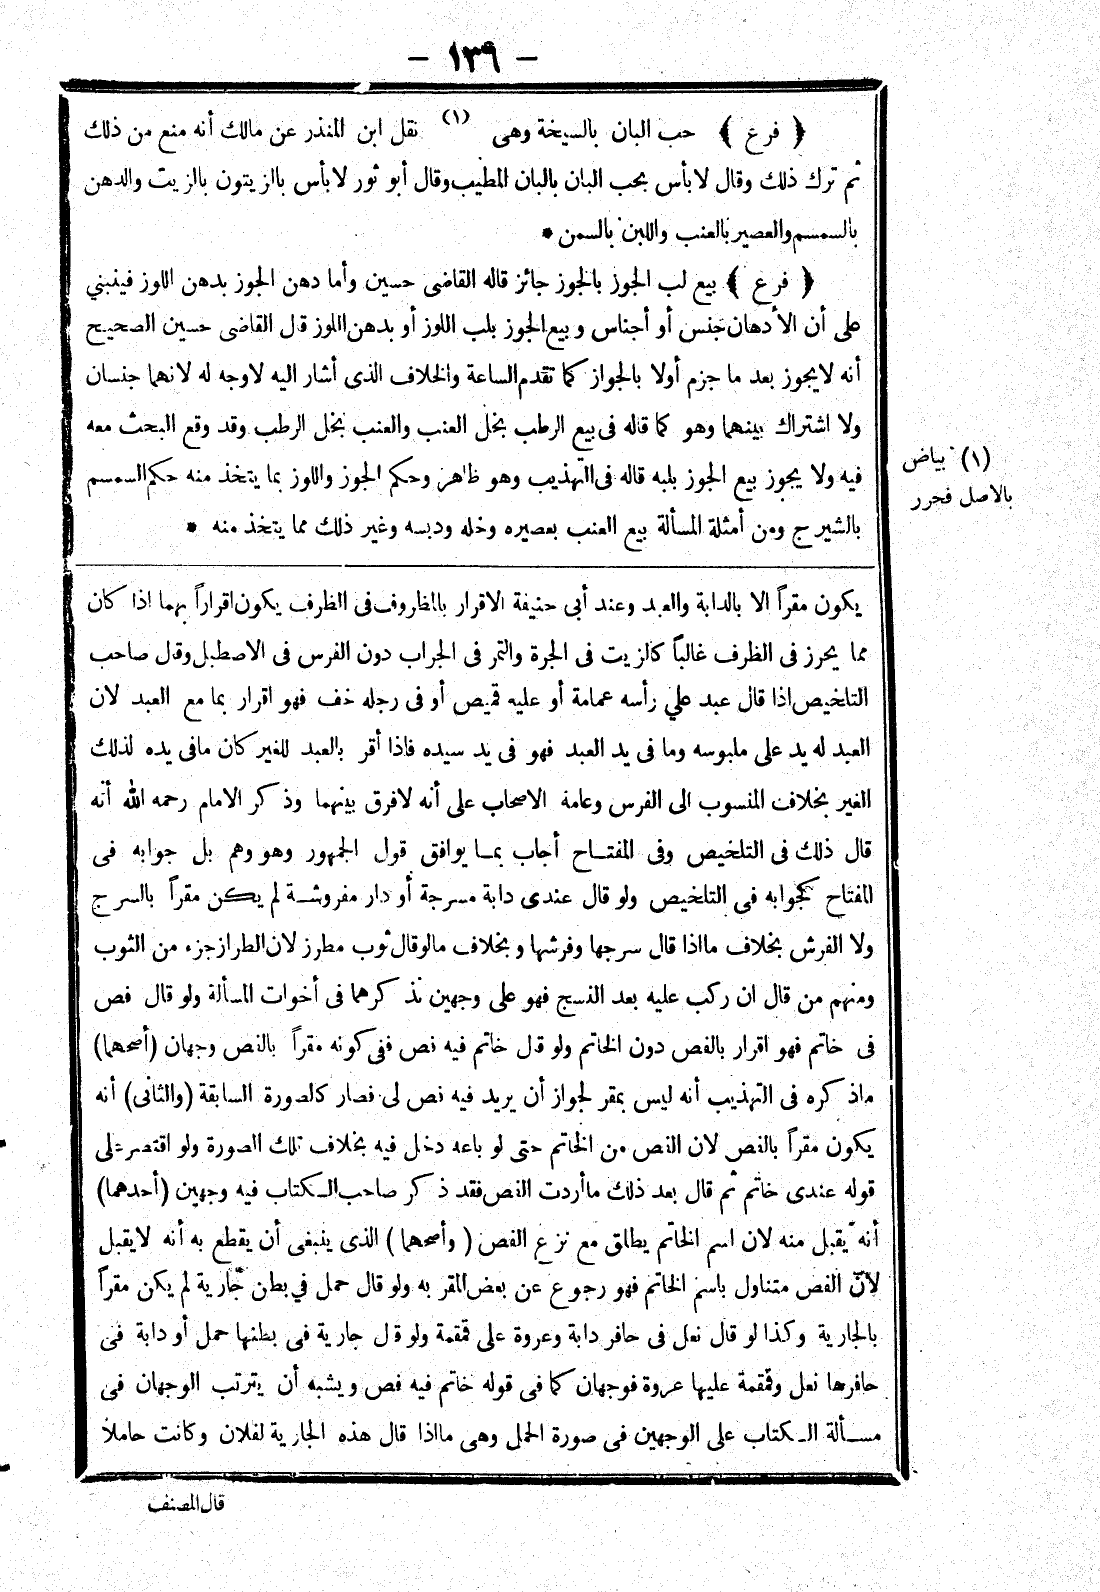 - ١٣٩ -
﴿ فرع ﴾ حب البان بالسيخة وهى (١) نقل ابن المنذر عن مالك أنه منع من ذلك
ثم ترك ذلك وقال لا بأس بحب البان بالبان المطيب وقال أبو ثور لا بأس بالزيتون بالزيت والدهن
بالسمسم والعصير بالعنب واللبن بالسمن *
﴿ فرع ﴾ بيع لب الجوز بالجوز جائز قاله القاضى حسين وأما دهن الجوز بدهن اللوز فينبني
على أن الأدهان جنس أو أجناس وبيع الجوز بلب اللوز أو بدهن اللوز قال القاضى حسين الصحيح
أنه لا يجوز بعد ما جزم أولا بالجواز كما تقدم الساعة والخلاف الذى أشار اليه لا وجه له لانهما جنسان
ولا اشتراك بينهما وهو كما قاله فى بيع الرطب بخل العنب والعنب بخل الرطب وقد وقع البحث معه
فيه ولا يجوز بيع الجوز بلبه قاله فى التهذيب وهو ظاهر وحكم الجوز واللوز بما يتخذ منه حكم السمسم
بالشيرج ومن أمثلة المسألة بيع العنب بعصيره وخله ودبسه وغير ذلك مما يتخذ منه *
(١) بياض
بالاصل فحرر
يكون مقراً الا بالدابة والعبد وعند أبى حنيفة الاقرار بالمظروف فى الظرف يكون اقراراً بهما اذا كان
مما يحرز فى الظرف غالباً كالزيت فى الجرة والتمر فى الجراب دون الفرس فى الاصطبل وقال صاحب
التلخيص اذا قال عبد علي رأسه عمامة أو عليه قميص أو فى رجله خف فهو اقرار بما مع العبد لان
العبد له يد على ملبوسه وما فى يد العبد فهو فى يد سيده فاذا أقر بالعبد للغير كان مافى يده لذلك
الغير بخلاف المنسوب الى الفرس وعامة الاصحاب على أنه لافرق بينهما وذكر الامام رحمه الله أنه
قال ذلك فى التلخيص وفى المفتاح أجاب بما يوافق قول الجمهور وهو وهم بل جوابه فى
المفتاح كجوابه فى التلخيص ولو قال عندى دابة مسرجة أو دار مفروشة لم يكن مقراً بالسرج
ولا الفرش بخلاف مااذا قال سرجها وفرشها وبخلاف مالوقال ثوب مطرز لان الطراز جزء من الثوب
ومنهم من قال ان ركب عليه بعد النسج فهو على وجهين نذكرهما فى أخوات المسألة ولو قال فص
فى خاتم فهو اقرار بالفص دون الخاتم ولو قال خاتم فيه فص ففى كونه مقراً بالفص وجهان (أصحهما)
ماذكره فى التهذيب أنه ليس بمقر لجواز أن يريد فيه فص لى فصار كالصورة السابقة (والثانى) أنه
يكون مقراً بالفص لان الفص من الخاتم حتى لو باعه دخل فيه بخلاف تلك الصورة ولو اقتصر على
قوله عندى خاتم ثم قال بعد ذلك ماأردت الفص فقد ذكر صاحب الكتاب فيه وجهين (أحدهما)
أنه يقبل منه لان اسم الخاتم يطلق مع نزع الفص ( وأصحهما ) الذى ينبغى أن يقطع به أنه لايقبل
لان الفص متناول باسم الخاتم فهو رجوع عن بعض المقر به ولو قال حمل في بطن جارية لم يكن مقراً
بالجارية وكذا لو قال نعل فى حافر دابة وعروة على قمقمة ولو قال جارية فى بطنها حمل أو دابة فى
حافرها نعل وقمقمة عليها عروة فوجهان كما فى قوله خاتم فيه فص ويشبه أن يترتب الوجهان فى
مسألة الكتاب على الوجهين فى صورة الحمل وهى مااذا قال هذه الجارية لفلان وكانت حاملا
قال المصنف